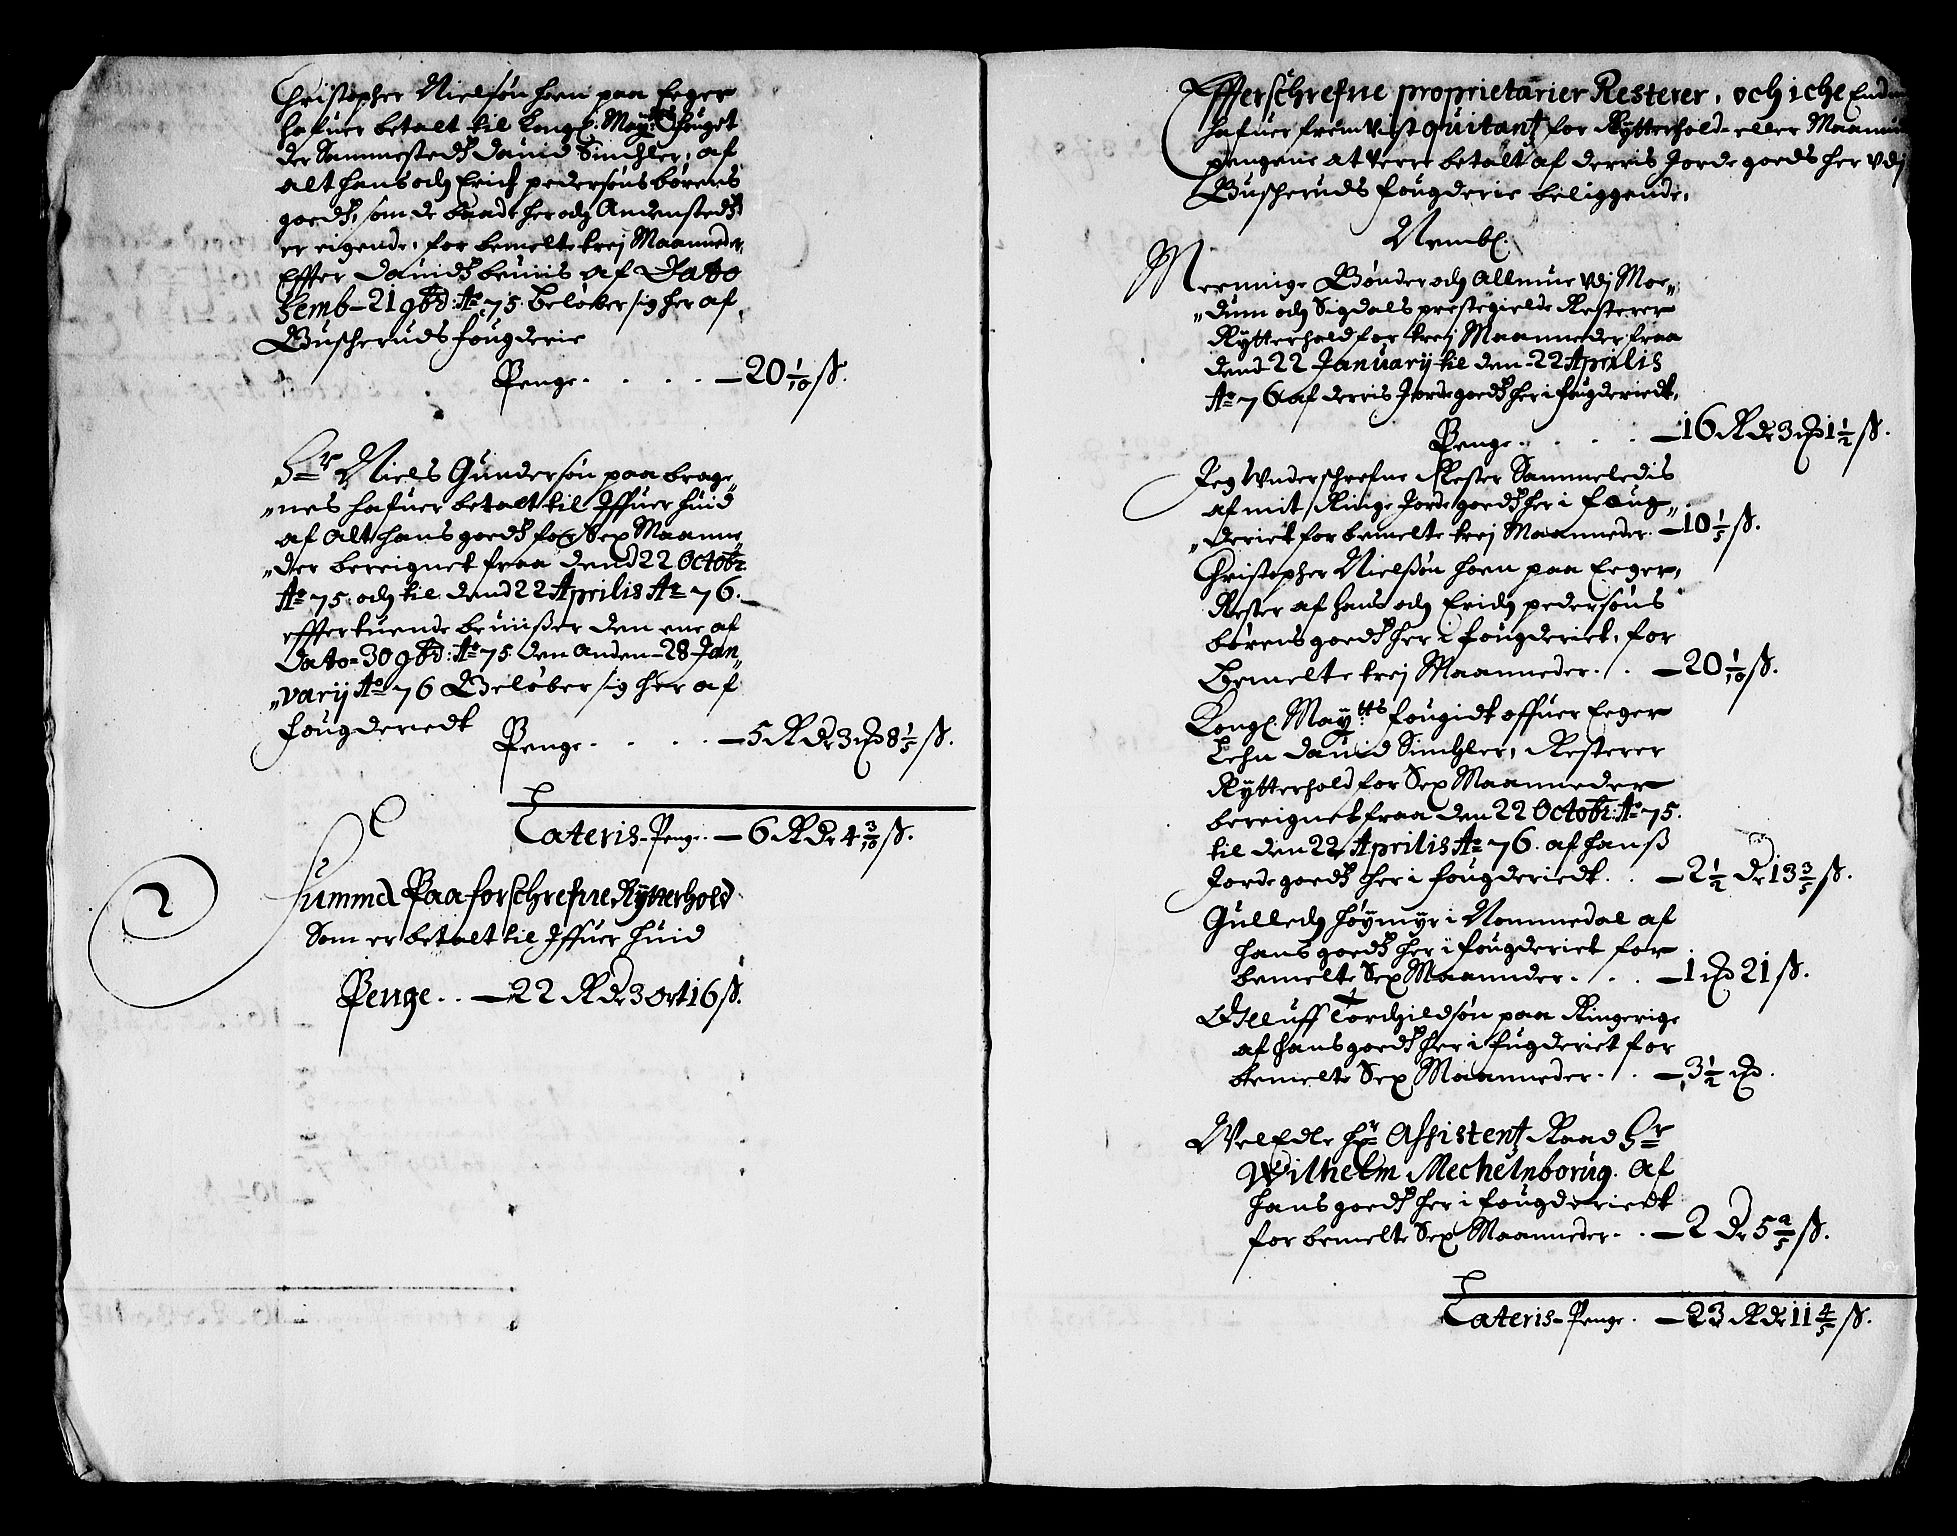 Christopher Nielsøn horn paa Eeger
hafuer betalt til Kongl: May:tts fougit
der Sammesteds Dauid Sinchler, af
alt hans och Erich pedersøns børens
goeds, som de baade her och Andensteds
er eigende, for bemelte trej Maaneder,
Effter Dauids beuiis af Dato
Femb- 21 9bd: Ao 75. beløber sig her af
Buscheruds fougderie
Penge. . . . . — 20 1/10 ß.
Hr Niels Gundersøn paa brage„
„nes hafuer betalt til Iffuer huid
af Alt hans goeds for Sex Maanne„
„der bereignet fraa dend 22 Octobr:
Ao 75. och til dend 22 Aprilis Ao 76. —
effter tuende beuiißer den ene af
Dato- 30 9bd: Ao 75. den Anden- 28 Jan„
„varij Ao 76 Beløber sig her af
fougderiedt
Penge. . . . . — 5 Rdr 3 mk 8 1/5 ß.
Lateris- Penge. — 6 Rdr 4 3/10 ß.
Summa Paa forschrefne Rytterhold
Som er betalt til Iffuer huid
Penge. . . — 22 Rdr 3 ort 16 ß.
Effterschrefne proprietarier Resterer, och iche End
hafuer fremvist quitantz for Rytterhold- eller Maanni
pengene at verre betalt af derris Jorde goeds her vdj
Buscheruds fougderie beliggende,
Nembl:
Mennige Bønder och Allmue vdj Moe„
„dum och Sigdals prestegielde Resterer
Rytterhold for trej Maanneder fraa
dend 22 Januarij til den- 22 Aprilis
Ao 76 af derris Jordegoeds her i fougderiedt,
Penge. . . . — 16 Rdr 3 mk 1 1/2 ß.
Jeg Underschrefne Rester Sammeledis
af mit Ringe Jordegoeds her i foug„
„deriet for bemelte trej Maanneder. — 10 1/5 ß.
Christopher Nielßøn horn paa Eeger,
Rester af hans och Erich pedersøns
børens goeds her i fougderiet, for
Bemelte trej Maanneder. . — 20 1/10 ß.
Kongl: May:tts fougidt offuer Eeger
Lehn Dauid Sinchler, Resterer
Rytterhold for Sex Maanneder
bereignet fraa den 22 Octobr: Ao 75.
til den 22 Aprilis Ao 76. af hanß
Jordegoeds her i fougderiedt. . — 2 1/2 dr 13 3/5 ß.
Gullech høymyr i Nommedal af
hans goeds her i fougderiet for
bemelte Sex Maannder. . . — 1 mk 21 ß.
Olluff Torchildsøn paa Ringerige
af hans goeds her i fugderiet for
bemelte Sex Maanneder. . — 3 1/2 mk.
WelEdle hr Assistentz Raad Hr
Wilhelm Mechelnborug. af
hans goeds her i fougderiedt
for bemelte Sex Maanneder. . — 2 dr 5 2/5 ß.
Lateris- Penge. — 23 Rdr 11 4/5 ß.